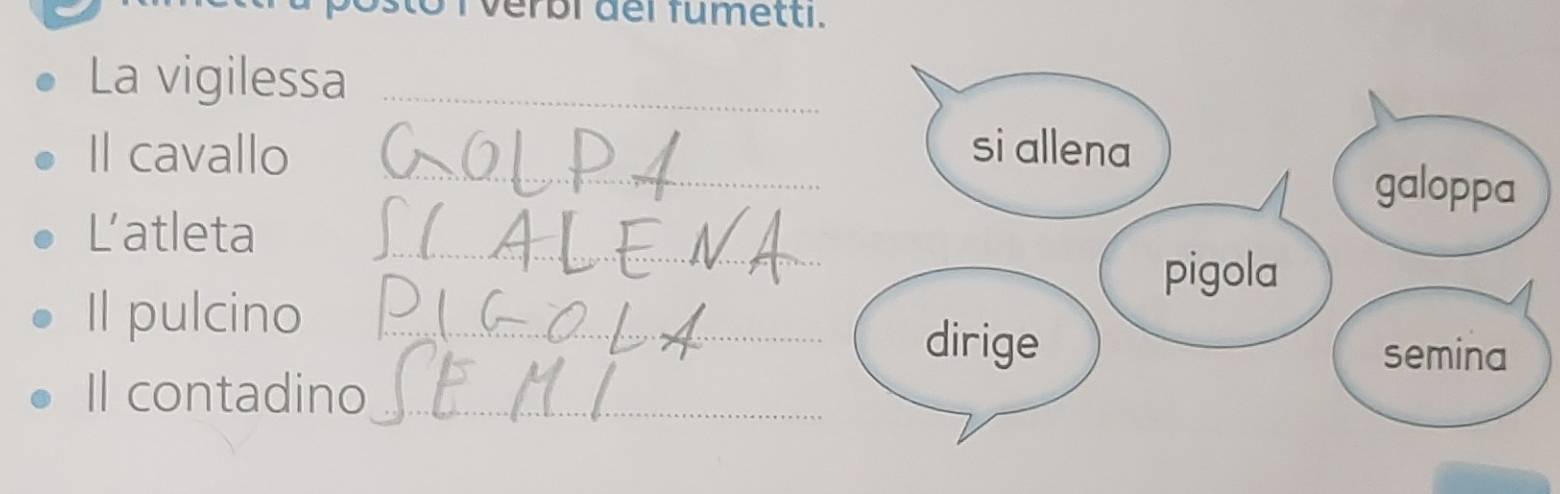 posto i verbi dei fumetti.
La vigilessa
Il cavallo GOLPA
L'atleta SI ALENA
Il pulcino PIGOLA
Il contadino SEMI
si allena
galoppa
pigola
dirige
semina